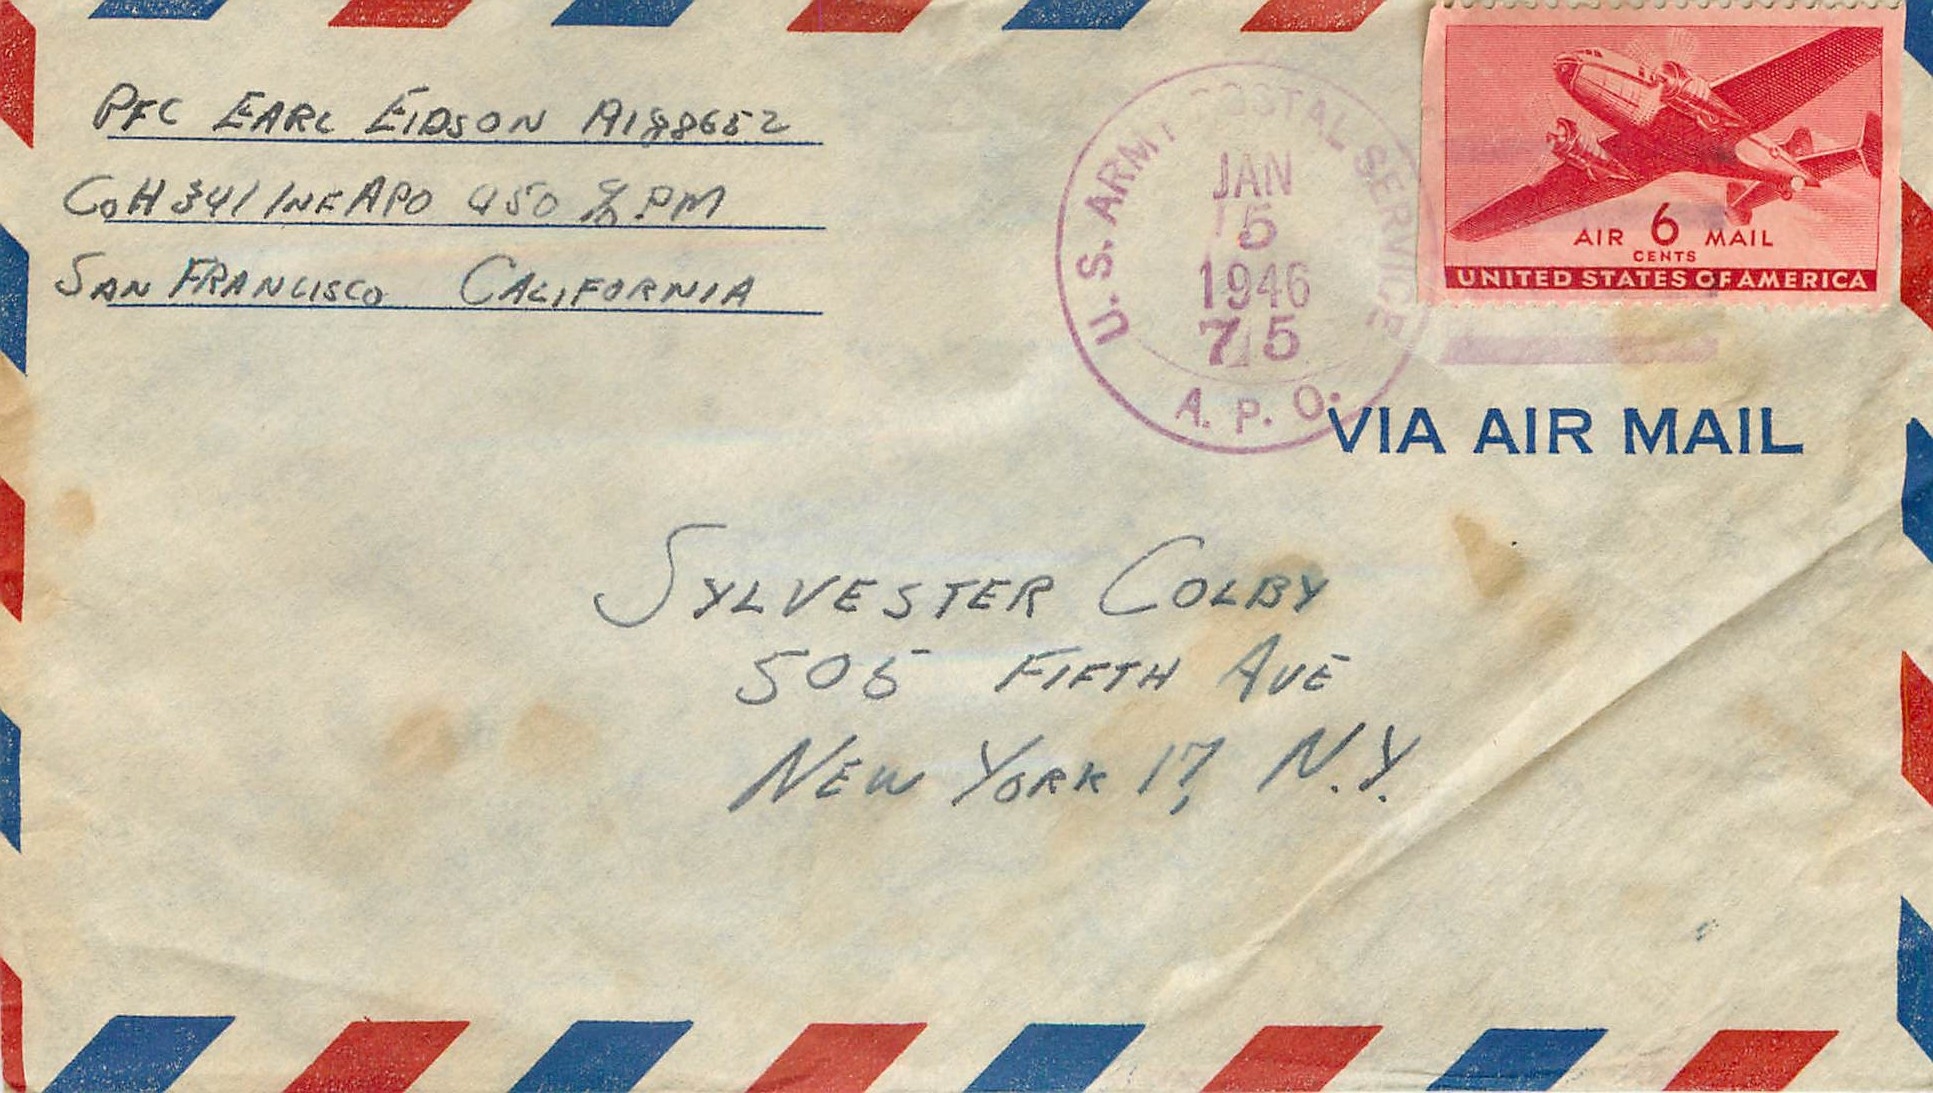 PFC EARL EIDSON A1988652
CO H 341 INF APO 450 % PM
SAN FRANCISCO CALIFORNIA
U.S. ARMY POSTAL SERVICE
JAN
5
1946
A. P. O.
AIR 6 MAIL
CENTS
UNITED STATES OF AMERICA
VIA AIR MAIL
SYLVESTER COLBY
505 FIFTH AVE
NEW YORK 17, N.Y.